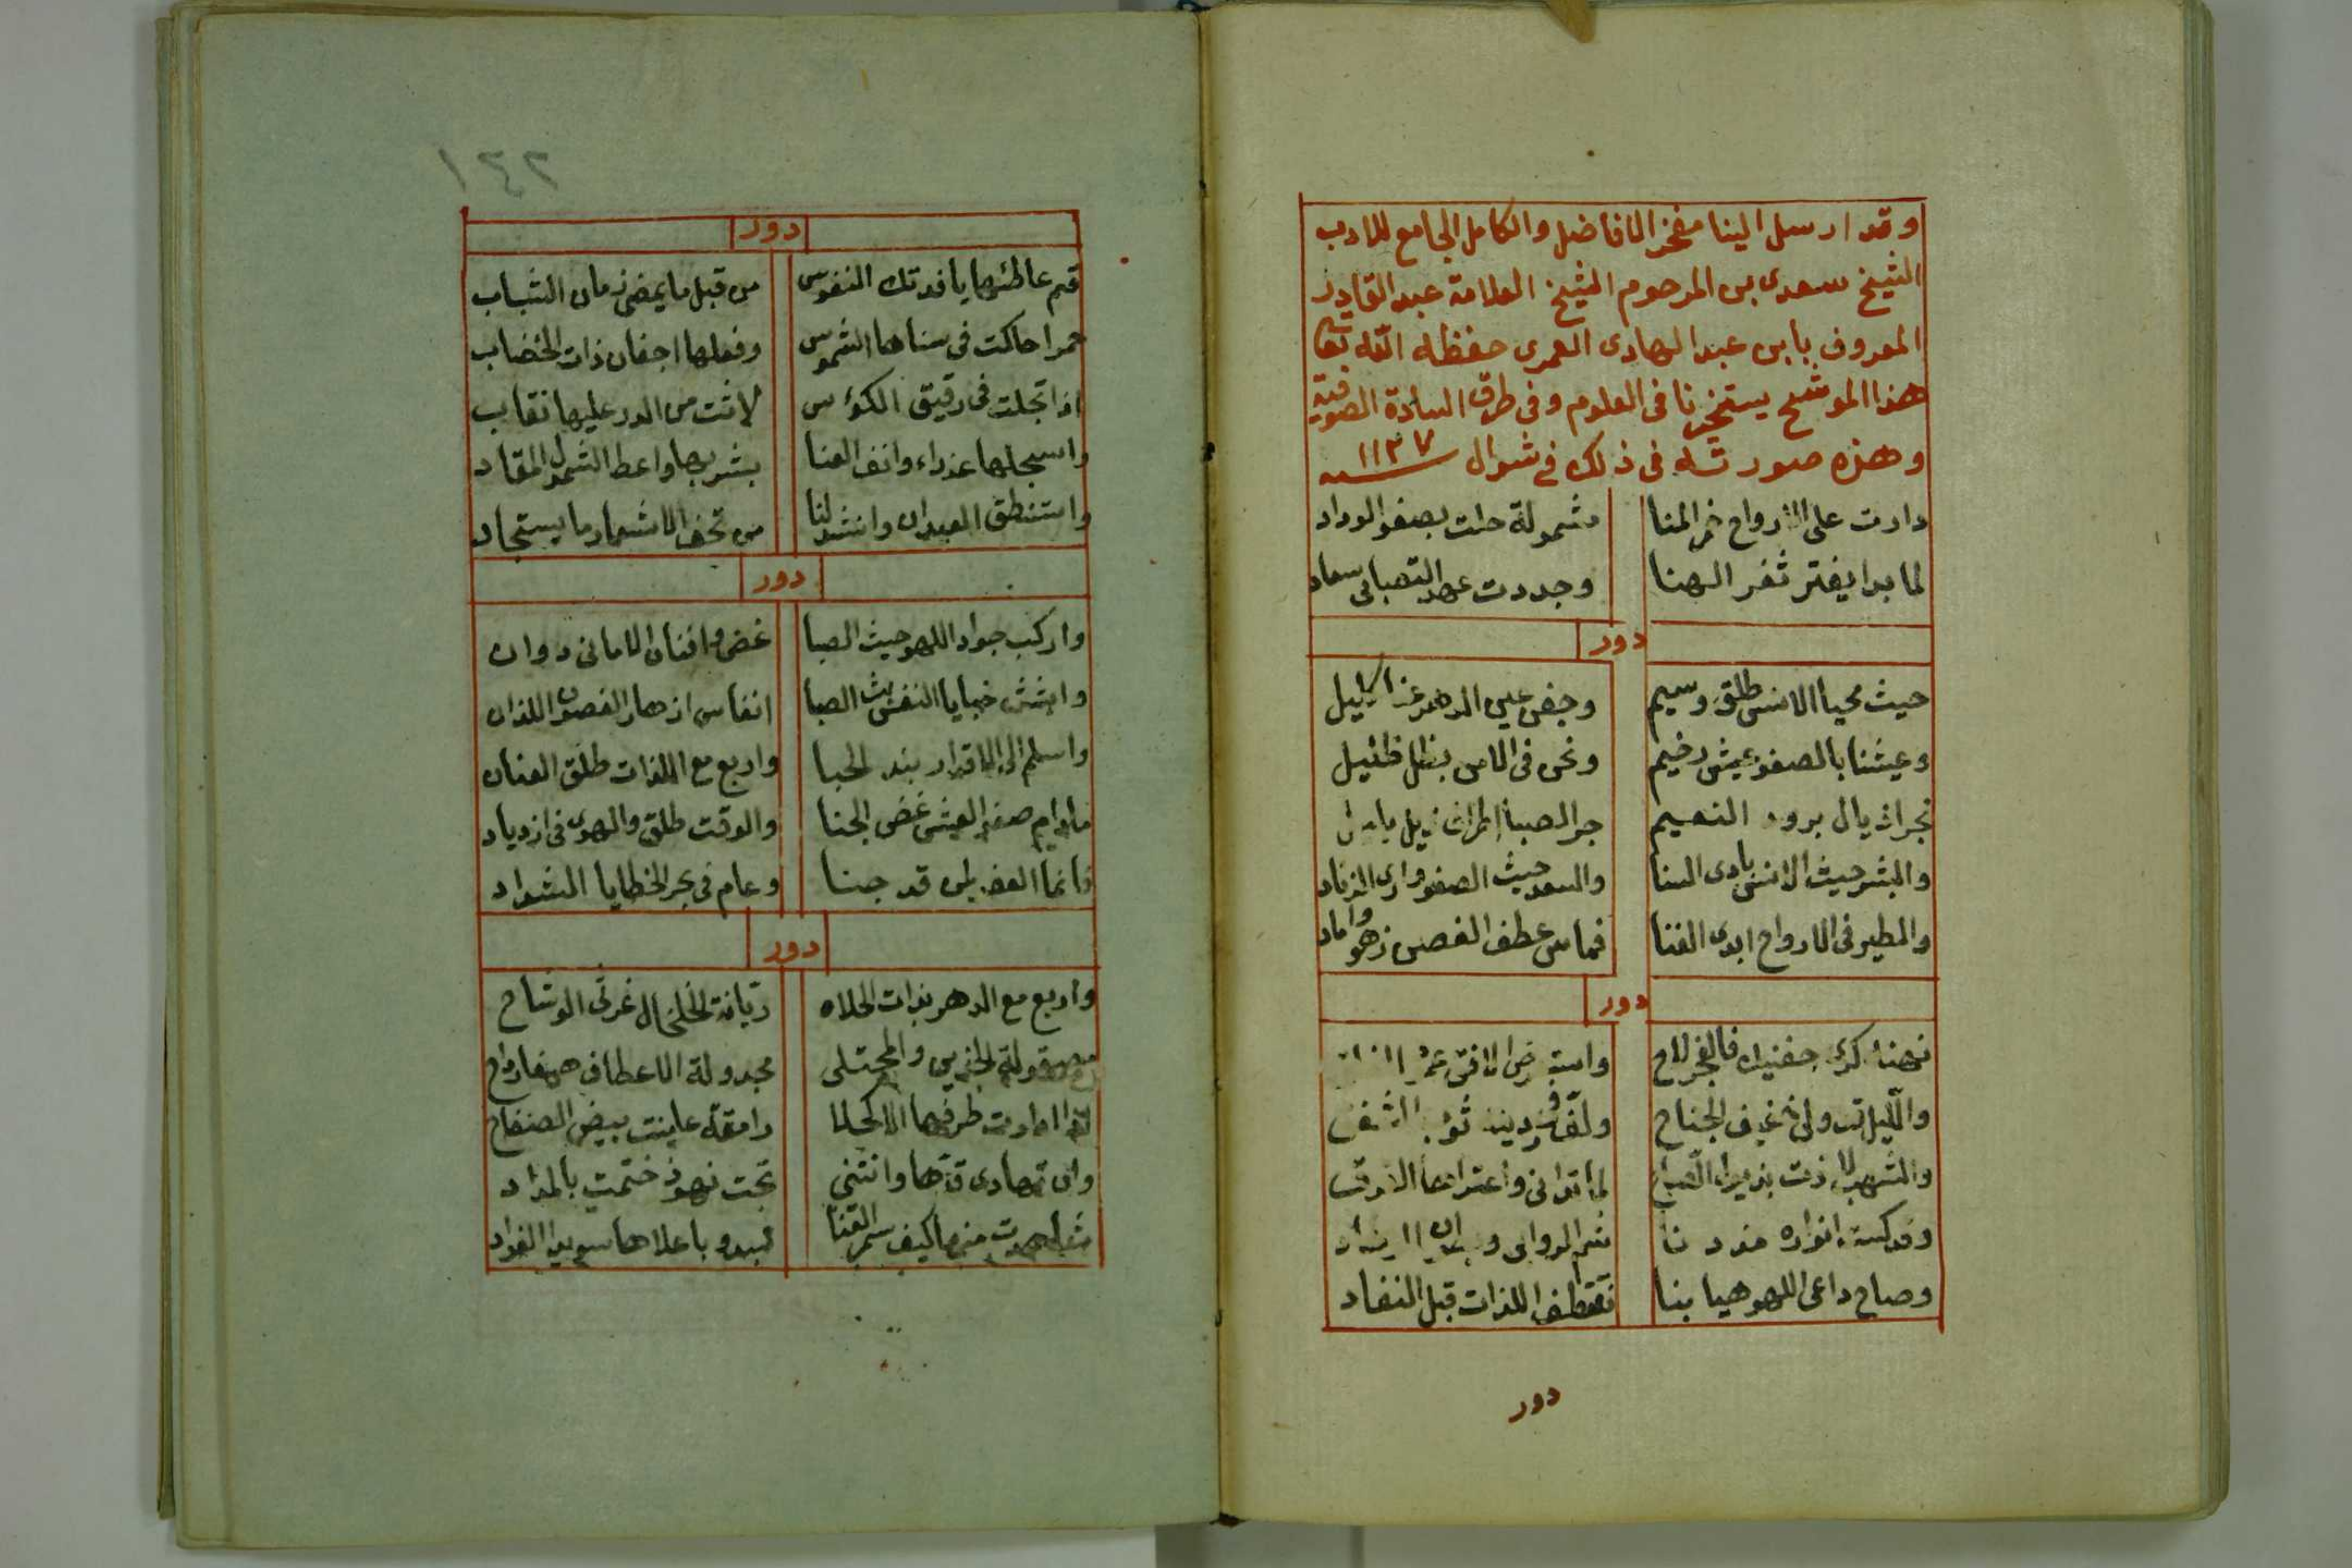 وقد ارسل الينا مفخر الافاضل والكامل الجامع للادب
الشيخ سعدى بن المرحوم الشيخ العلامة عبد القادر
المعروف بابن عبد الهادى العمرى حفظه الله تعالى
هذا الموشح يستخبرنا فى العلوم وفى طرق السادة الصوفية
وهذه صورته فى ذلك فى شوال سنه ١١٣٧
دارت على الارواح خمر المنا مشمولة حلت بصفو الوداد
لما بدا يفتر ثغر الهنا وجددت عهد التصابى سعاد
دور
حيث محيا الانس طلق وسيم وجفن عين الدهر عنا كليل
وعيشنا بالصفو عيش رخيم ونحن فى الامن بظل ظليل
نجر اذيال برود النعيم جر الصبا ذيل
والبشر حيث الانس بادى السنا والسعد حيث الصفو وارى الزناد
والطير فى الادواح ابدى الغنا فماس عطف الغصن زهوا وماد
دور
كرى جفنيك فالفجر لاح الافق
والليل ولى الجناح ثوب الشفق
والشهب لاذت الصباح
انواره
وصاح داعى اللهو هيا بنا نقتطف اللذات قبل النفاد
دور
١٤٢
دور
قم عاطنيها يا فدتك النفوس من قبل ما يمضى زمان الشباب
حمرا حاكت فى سناها الشموس وفعلها اجفان ذات الخضاب
اذا تجلت فى رقيق الكؤس لاثت من الدر عليها نقاب
واستجلها عذراء وانف العنا بشربها واعط الشمول المقاد
واستنطق العيدان وانشد لنا من تحف الاشعار ما يستجاد
دور
واركب جواد اللهو حيث الصبا غض وافنان الامانى دوان
وانش خبايا النفس الصبا انفاس ازهار الغصون اللدان
واسلم الى الاقدار بند الحبا واربع مع اللذات طلق العنان
مادام صفو العيش غض الجنا والوقت طلق والهوى فى ازدياد
فانما العفو لمن قد جنا وعام فى بحر الخطايا الشداد
دور
واربع مع الدهر بذات الحلاه ريانة الخلخال غرثى الوشاح
مصقولة الخدين والمجتلى مجدولة الاعطاف
اذا ادارت طرفها الاكحلا رامقة عاينت بيض الصفاح
وان تهادى قدها وانثنى تحت نهود ختمت بالمداد
شاهدت منها كيف سمر القنا تبدو باعلاها سويدا الفواد